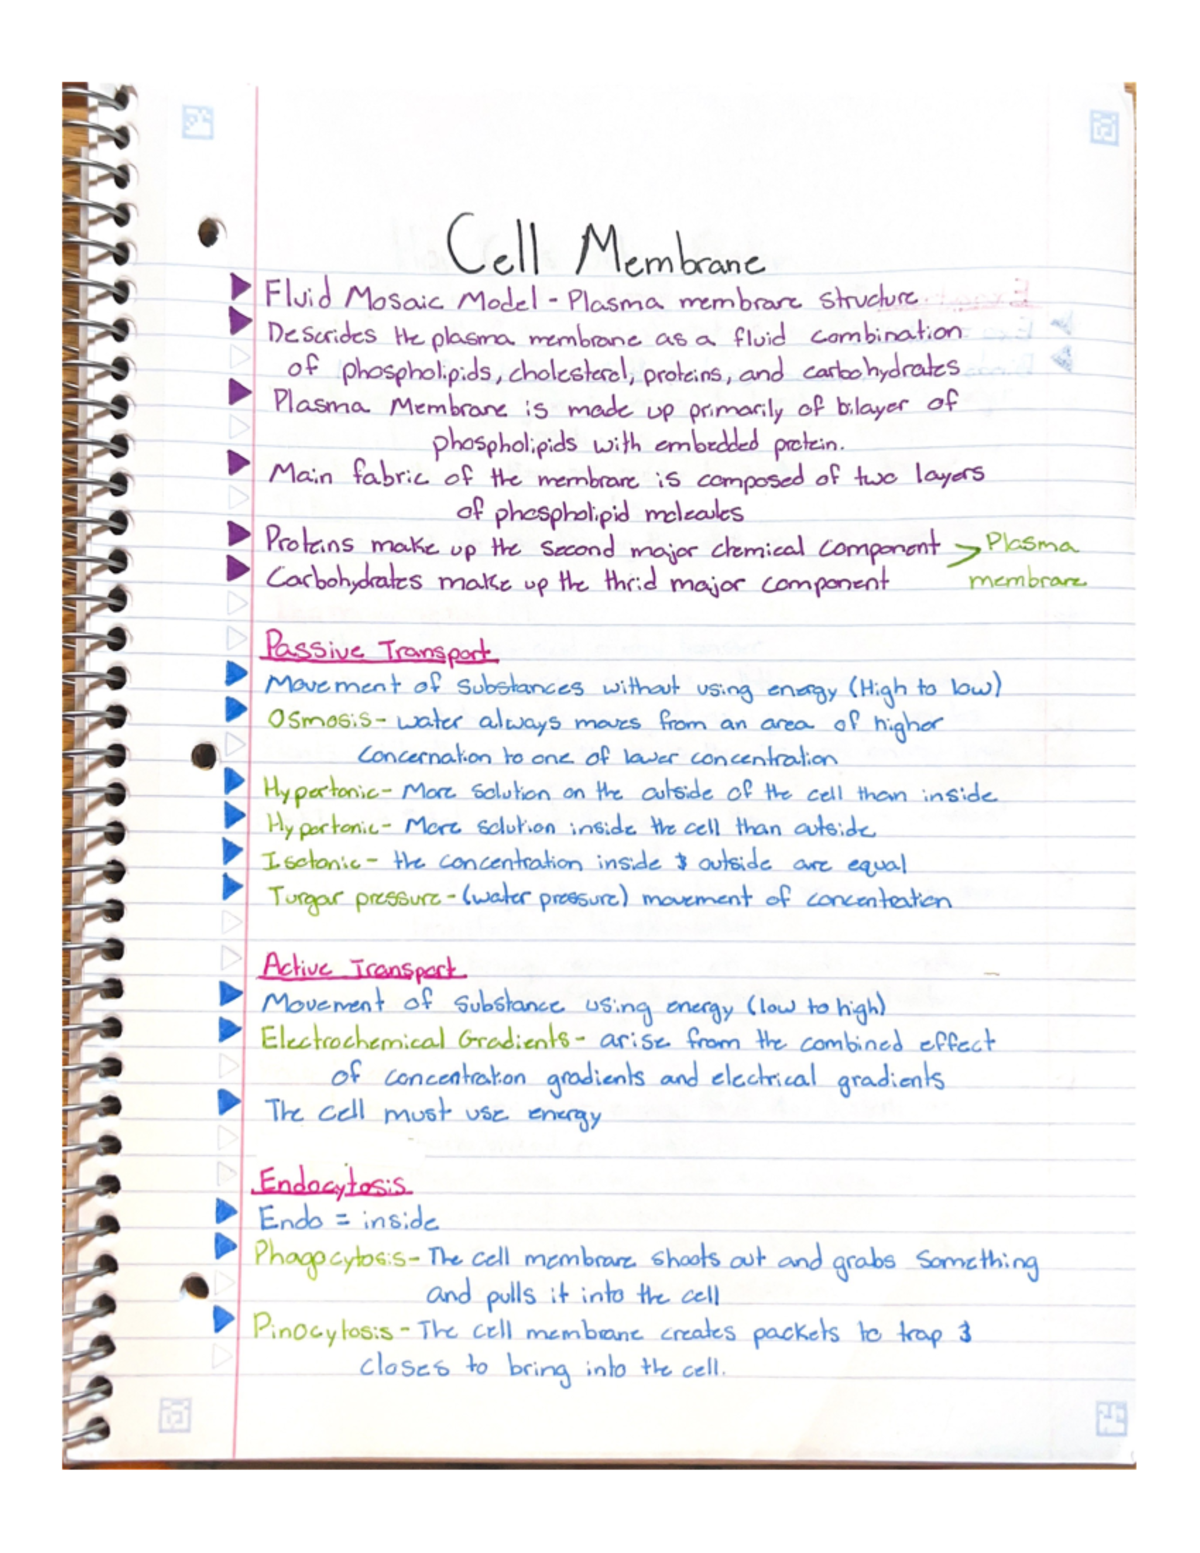 Cell Membrane
Fluid Mosaic Model - Plasma membrane structure
Describes the plasma membrane as a fluid combination
of phospholipids, cholesterol, proteins, and carbohydrates
Plasma Membrane is made up primarily of bilayer of
phospholipids with embedded protein.
Main fabric of the membrane is composed of two layers
of phospholipid molecules
Proteins make up the second major chemical component > Plasma
Carbohydrates make up the thrid major component membrane
Passive Transport
Movement of substances without using energy (High to low)
Osmosis - water always moves from an area of higher
concernation to one of lower concentration
Hypertonic - More solution on the outside of the cell than inside
Hypertonic - More solution inside the cell than outside
Isotonic - the concentration inside & outside are equal
Turgar pressure - (water pressure) movement of concentration
Active Transport
Movement of substance using energy (low to high)
Electrochemical Gradients - arise from the combined effect
of concentration gradients and electrical gradients
The cell must use energy
Endocytosis
Endo = inside
Phagocytosis - The cell membrane shoots out and grabs something
and pulls it into the cell
Pinocytosis - The cell membrane creates packets to trap &
closes to bring into the cell.